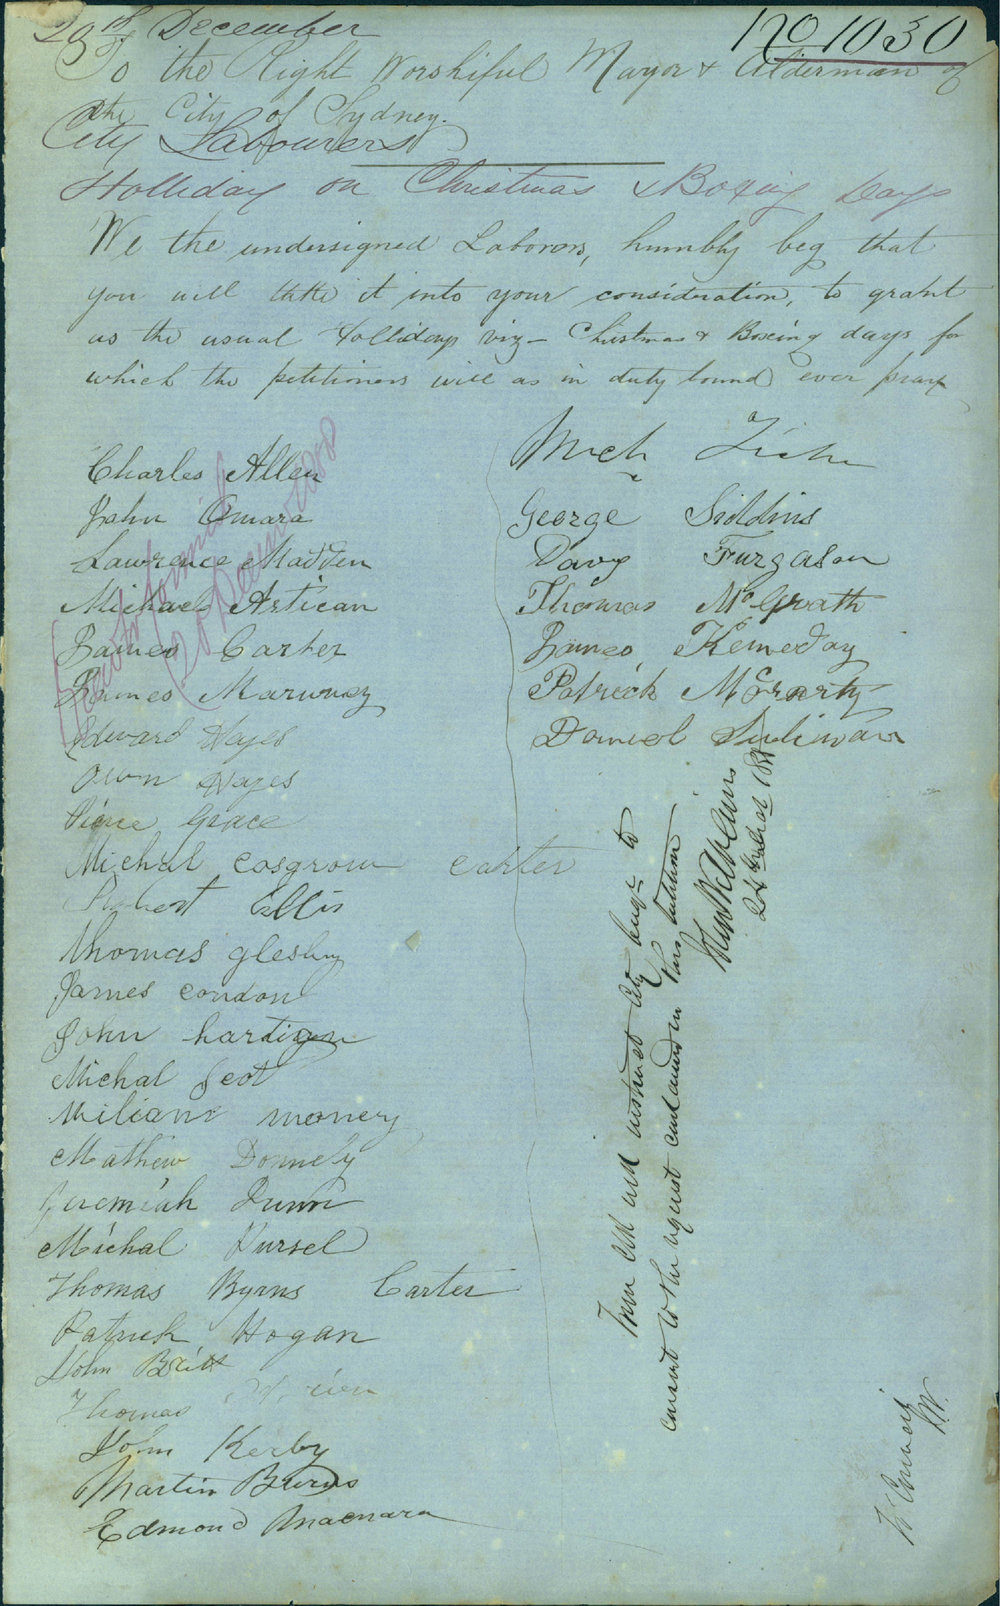 29th December
No 1030
To the Right Worshipful Mayor & Alderman of
the City of Sydney.
City Labourers
Holliday on Christmas & Boxing Days
We the undersigned Laborors, humbly beg that
you will take it into your consideration, to grant
us the usual Hollidays viz - Christmas & Boxing days for
which the petitioners will as in duty bound ever pray
Charles Allen
John Omara
Lawrence Madden
Michael Artican
James Carter
James Marwney
Edward Hayes
Own Hayes
Pierce Grace
Michal Cosgrow Carter
Robert Ellis
Thomas glesby
James Condon
John hartigan
Michal Scot
Wiliam money
Mathew Donnely
Jeremiah Dunn
Michal Pursel
Thomas Byrns Carter
Patrick Hogan
John Britt
Thomas
John Kerby
Martin Burns
Edmond Macnara
Mich
George Siddins
Davy Furgason
Thomas McGrath
James Kenneday
Patrick McGrarty
Daniel Sulivan
20 December
Town Clk will instruct City Engr to
consent to the request contained in this petition
24